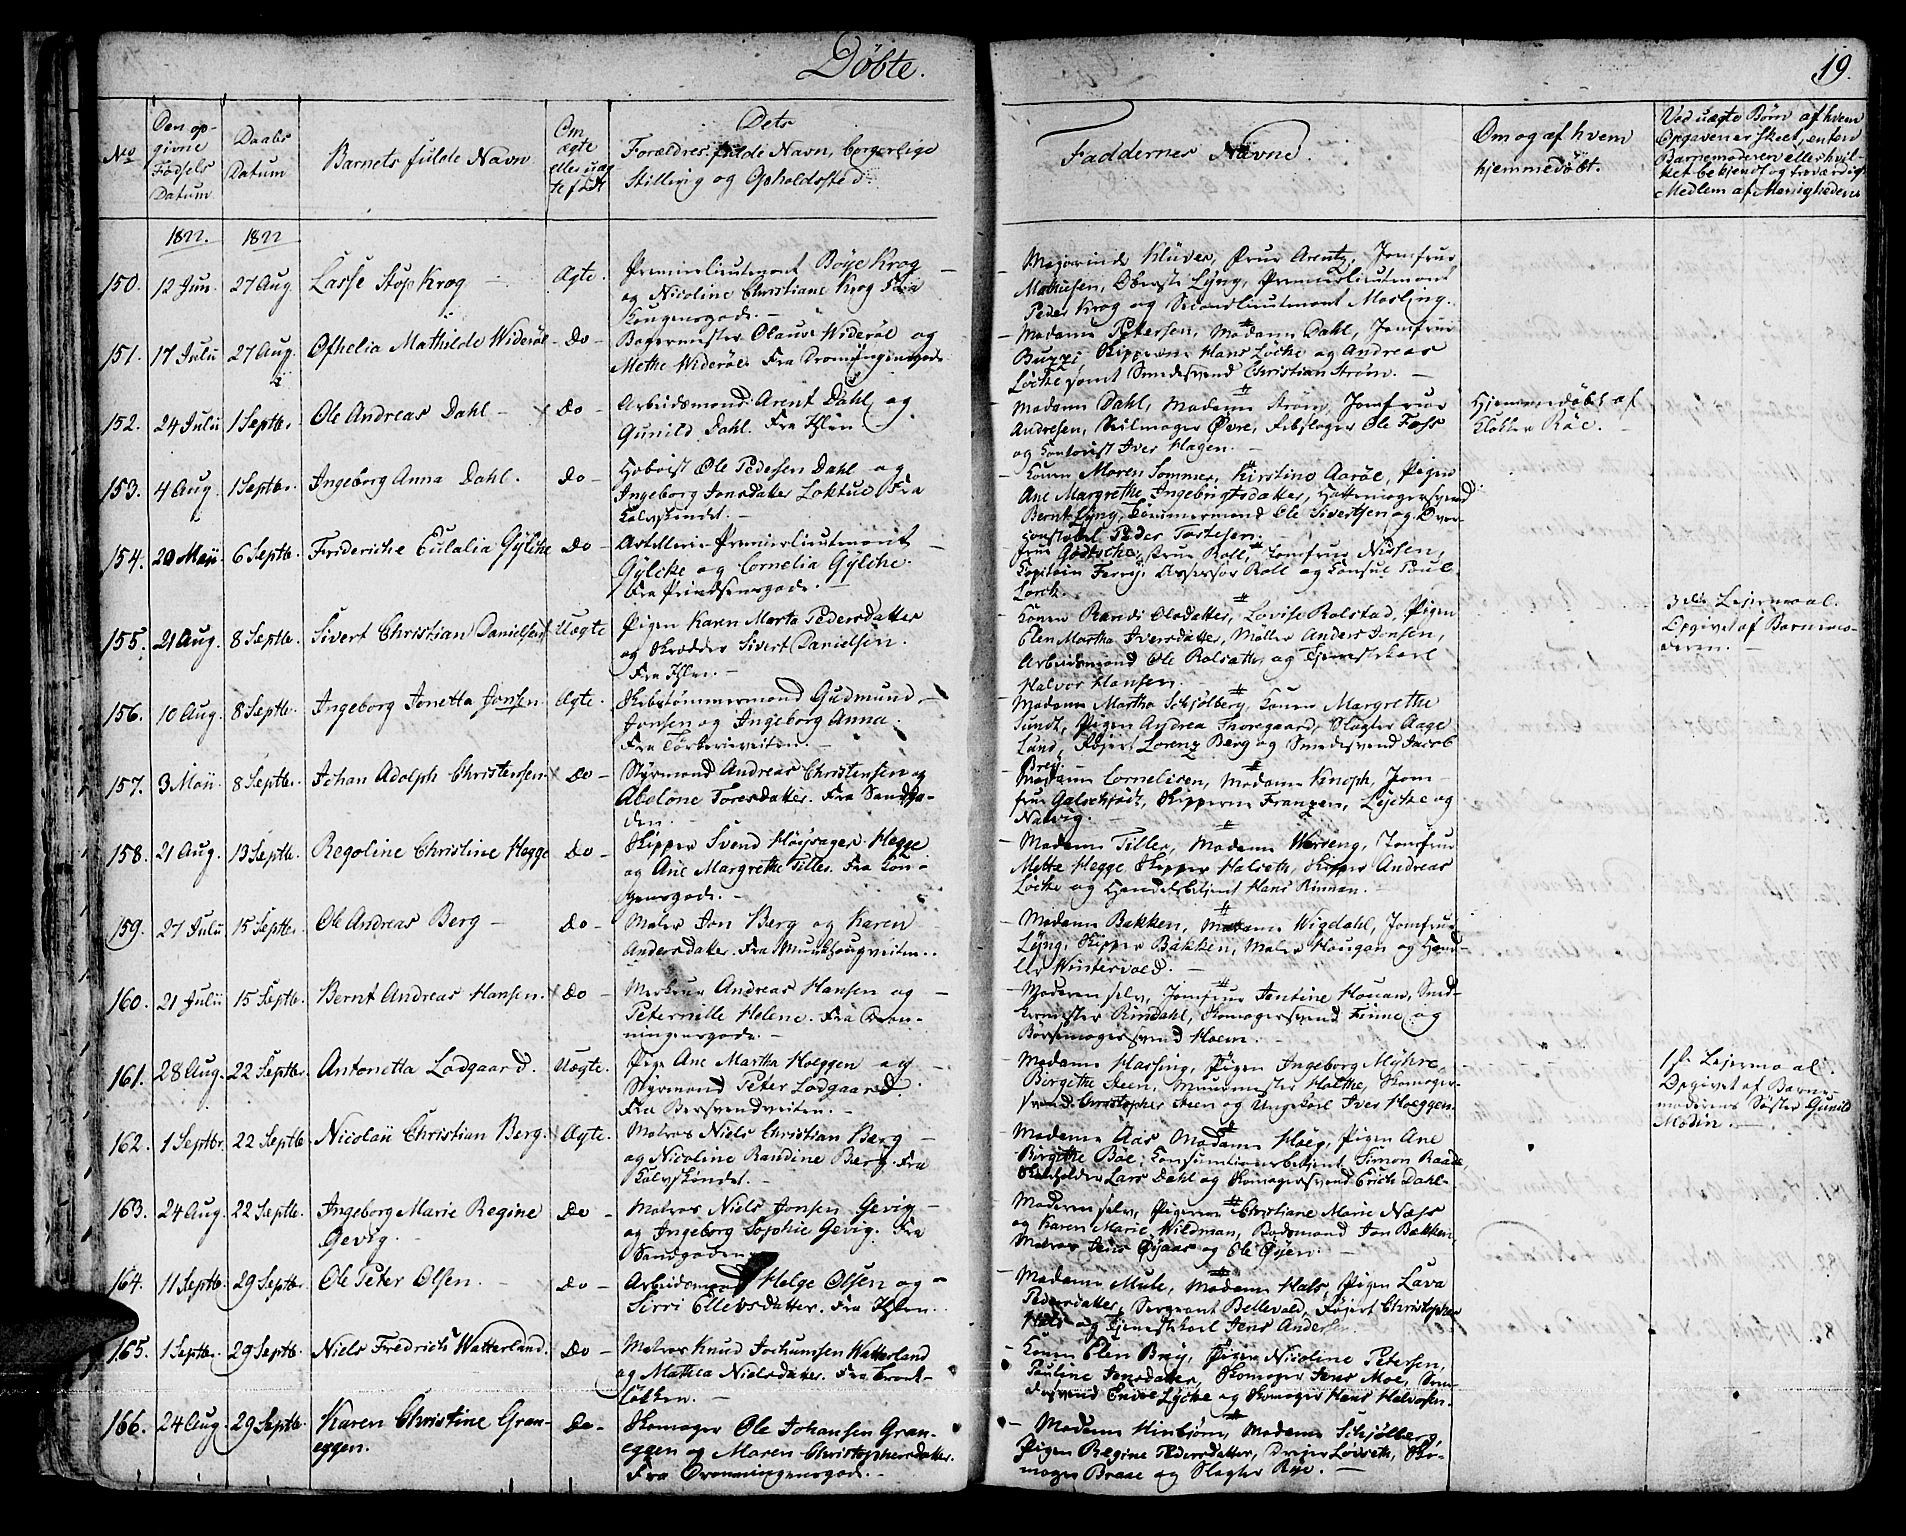 Döbte.
19.
No
Den op-
givne
Födsels
Datum
Daabs
Datum
Barnets fulde Navn
Om
ægte
eller uæg
te födt
Dets
Forældres fulde Navn, borgerlige
Stilling og Opholdssted.
Faddernes Navne.
Om og af hvem
hjemmedöbt.
Ved uægte Börn af hvem
Opgaven er skeet, enten
Barnemoderen eller hvil-
ket bekjendt og troværdigt
Medlem af Menigheden
1822. 1822
150. 12 Jun. 27 Aug Lasse Stop Krog Ægte.
Premierlieutenant Böye Krog
og Nicoline Christiane Krog Fra
Kongensgade.
Majorinde Klüver, Frue Arentz, Jomfrue
Mathiesen, Oberste Lyng, Premierlieutenant
Peder Krog og Secondlieutenant Mosling.
151. 17 Julii 27 Aug. Ofhelia Mathilde Wideröe Do
Bagermester Olaus Wideröe og
Methe Wideröe. Fra Dronningensgade
Madame Petersen, Madame Dahl, Jomfrue
Buzzi Skipperne Hans Löcke og Andreas
Löcke samt Smedesvend Christian Ström.
152. 24 Julii 1 Septbr. Ole Andreas Dahl Do
Arbeidsmand Arent Dahl og
Gunild Dahl. Fra Ihlen
Madame Dahl, Madame Ström, Jomfrue
Andresen, Seilmager Övre, Feldskjær Ole Foss
og Contorist Iver Hagen.
Hjemmedöbt af
Klokker Röe.
153. 4 Aug. 1 Septbr. Ingeborg Anna Dahl. Do
Hoboist Ole Pedersen Dahl og
Ingeborg Jonsdatter Loktue Fra
Kalvskindet.
Konen Maren Sommer, Kirstine Aaröe, Pigen
Ane Margrethe Ingebrigtsdatter, Hattemagersvend
Bernt Lyng, Tömmermand Ole Sivertsen og Over-
konstabel Peder Torstesen.
154. 20 Maji 6 Septb. Frideriche Eulalia Gylche Do
Artillerie Premierlieutenant
Gylche og Cornelia Gylche.
Fra Prindsensgade.
Frue Godtsche, Frue Roll, Jomfrue Nissen,
Capitain Ferry, Assessor Roll og Consul Poul
Lorck.
155. 21 Aug. 8 Septb. Sivert Christian Danielsen Uægte
Pigen Karen Marta Pedersdatter
og Skrædder Sivert Danielsen
Fra Ihlen.
Konen Randi Olsdatter, Lovise Rolstad, Pigen
Elen Martha Iversdatter, Möller Anders Jensen,
Arbeidsmand Ole Rolseth og Tjenestekarl
Halvor Hansen.
3die Lejermaal.
Opgivet af Barnemo-
deren.
156. 10 Aug. 8 Septb. Ingeborg Jonetta Jonsen Ægte.
Skibstömmermand Gudmund
Jonsen og Ingeborg Anna.
Fra Törberieveiten.
Madame Martha Schjölberg, Konen Margrethe
Sundt, Pigen Andrea Thoregaard, Slagter Aage
Lund, Föjert Lorenz Berg og Smedesvend Jacob
Brey.
157. 3 Maji 8 Septb. Johan Adolph Christensen. Do
Styrmand Andreas Christensen og
Abelone Toresdatter. Fra Sandga-
den.
Madame Cornelisen, Madame Knoph, Jom-
frue Galschjödt, Skipperne Franzen, Lycke og
Natvig.
158. 21 Aug. 13 Septb. Regoline Christine Hegge Do
Skipper Svend Höjsager Hegge
og Ane Margrethe Tiller. Fra Kon-
gensgade.
Madame Tiller, Madame Werseng, Jomfrue
Mette Hegge Skipper Halseth, Skipper Andreas
Löcke og Handelsbetjent Hans Rinnan.
159. 27 Julii 15 Septbr. Ole Andreas Berg Do
Maler Jon Berg og Karen
Andersdatter. Fra Munkhougveiten.
Madame Bakken, Madame Wigdahl, Jomfrue
Lyng, Skipper Bakken, Maler Hougan og Hand-
ler Wintervold.
160. 21 Julii 15 Septb. Bernt Andreas Hansen. Do
Murer Andreas Hansen og
Peternille Helene. Fra Dron-
ningensgade.
Moderen selv, Jomfrue Jentine Houan, Smed-
kermester Rindahl, Skomagersvend Finne og
Börsemagersvend Hoem.
161. 28 Aug. 22 Septbr. Antonetta Lodgaard. Uægte.
Pige Ane Martha Hoeggen og
Styrmand Peter Lodgaard.
Fra Bersvendveiten.
Madame Harsing, Pigen Ingeborg Myhre,
Birgithe Steen, Muurmester Halthe, Skomager-
svend Christopher Steen og Ungekarl Iver Hoeggen.
1ste Lejermaal.
Opgivet af Barne-
moderens Söster Gunild
Modin.
162. 1 Septbr. 22 Septb. Nicolaii Christian Berg. Ægte.
Matros Niels Christian Berg
og Nicoline Randine Berg. Fra
Kalvskindet.
Madame Aas Madame Höeg, Pigen Ane
Birgithe Böe, Consumtionsbetjent Simon Raade
Lars Dahl og Skomagersvend Erich Dahl.
163. 24 Aug. 22 Septb. Ingeborg Marie Regine
Gevig. Do
Matros Niels Jonsen Gevig
og Ingeborg Sophie Gevig. Fra
Sandgaden.
Moderen selv, Pigerne Christiane Marie Næss
og Karen Marie Wildman, Baadsmand Jon Bakken
Matros Jens Öyaas og Ole Öyen.
164. 11 Septb. 29 Septb. Ole Peter Olsen. Do
Arbeidsmand Helge Olsen og
Sirri Ellevsdatter. Fra Ihlen.
Madame Mule, Madame Hals, Pigen Lava
Pedersdatter, Sergeant Bellevald, Föjert Christopher
Hals og Tjenestekarl Jens Andersen.
165. 1 Septbr. 29 Septb. Niels Fredrich Watterland. Do
Matros Knud Johansen Watterland
og Mathea Nielsdatter. Fra Brat-
lökken.
Konen Elen Brey, Pigen Nicoline Petersen,
Pauline Jensdatter, Skomager Jens Moe, Sme-
desvend Endre Lycke og Skomager Hans Halvorsen.
166. 24 Aug. 29 Septb. Karen Christine Gran-
eggen. Do
Skomager Ole Johansen Gran-
eggen og Maren Christophersdatter.
Fra Dronningensgade.
Madame Hinbjörn, Madame Schjölberg,
Pigen Regine Pedersdatter, Drejer Lövseth, Sko-
mager Braae og Slagter Rye.